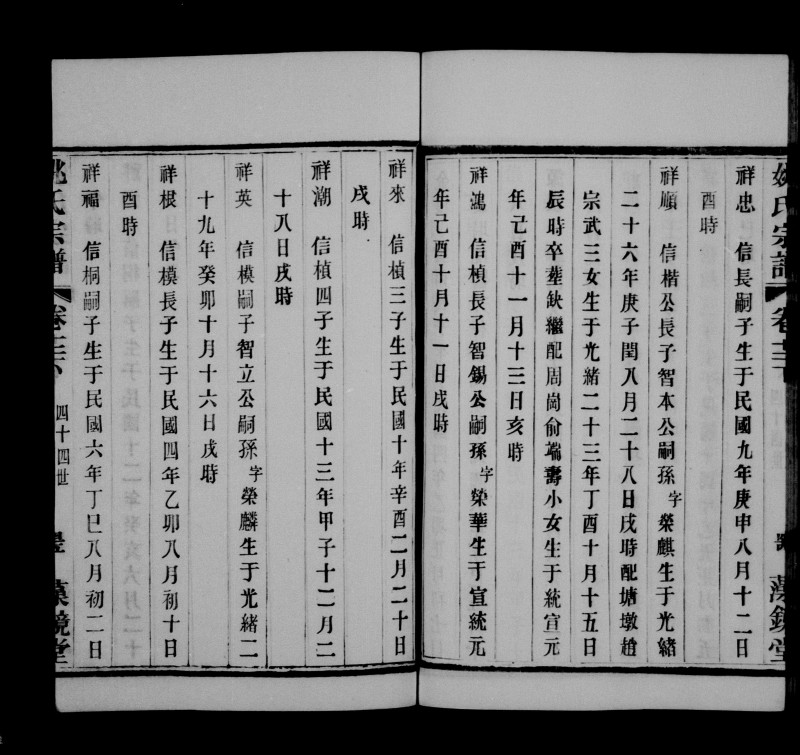 姚氏宗譜
卷
藻鏡堂
祥忠　信長嗣子生于民國九年庚申八月十二日
酉時
祥順　信楷公長子智本公嗣孫字榮麒生于光緒
二十六年庚子閏八月二十八日戌時配塘墩趙
宗武三女生于光緒二十三年丁酉十月十五日
辰時卒塟缺繼配周崗俞端壽小女生于統宣元
年己酉十一月十三日亥時
祥鴻　信楨長子智錫公嗣孫字榮華生于宣統元
年己酉十月十一日戌時
祥來　信楨三子生于民國十年辛酉二月二十日
戌時
祥潮　信楨四子生于民國十三年甲子十二月二
十八日戌時
祥英　信模嗣子智立公嗣孫字榮麟生于光緒二
十九年癸卯十月十六日戌時
祥根　信模長子生于民國四年乙卯八月初十日
酉時
祥福　信桐嗣子生于民國六年丁巳八月初二日
姚氏宗譜
卷
四十四世
藻鏡堂